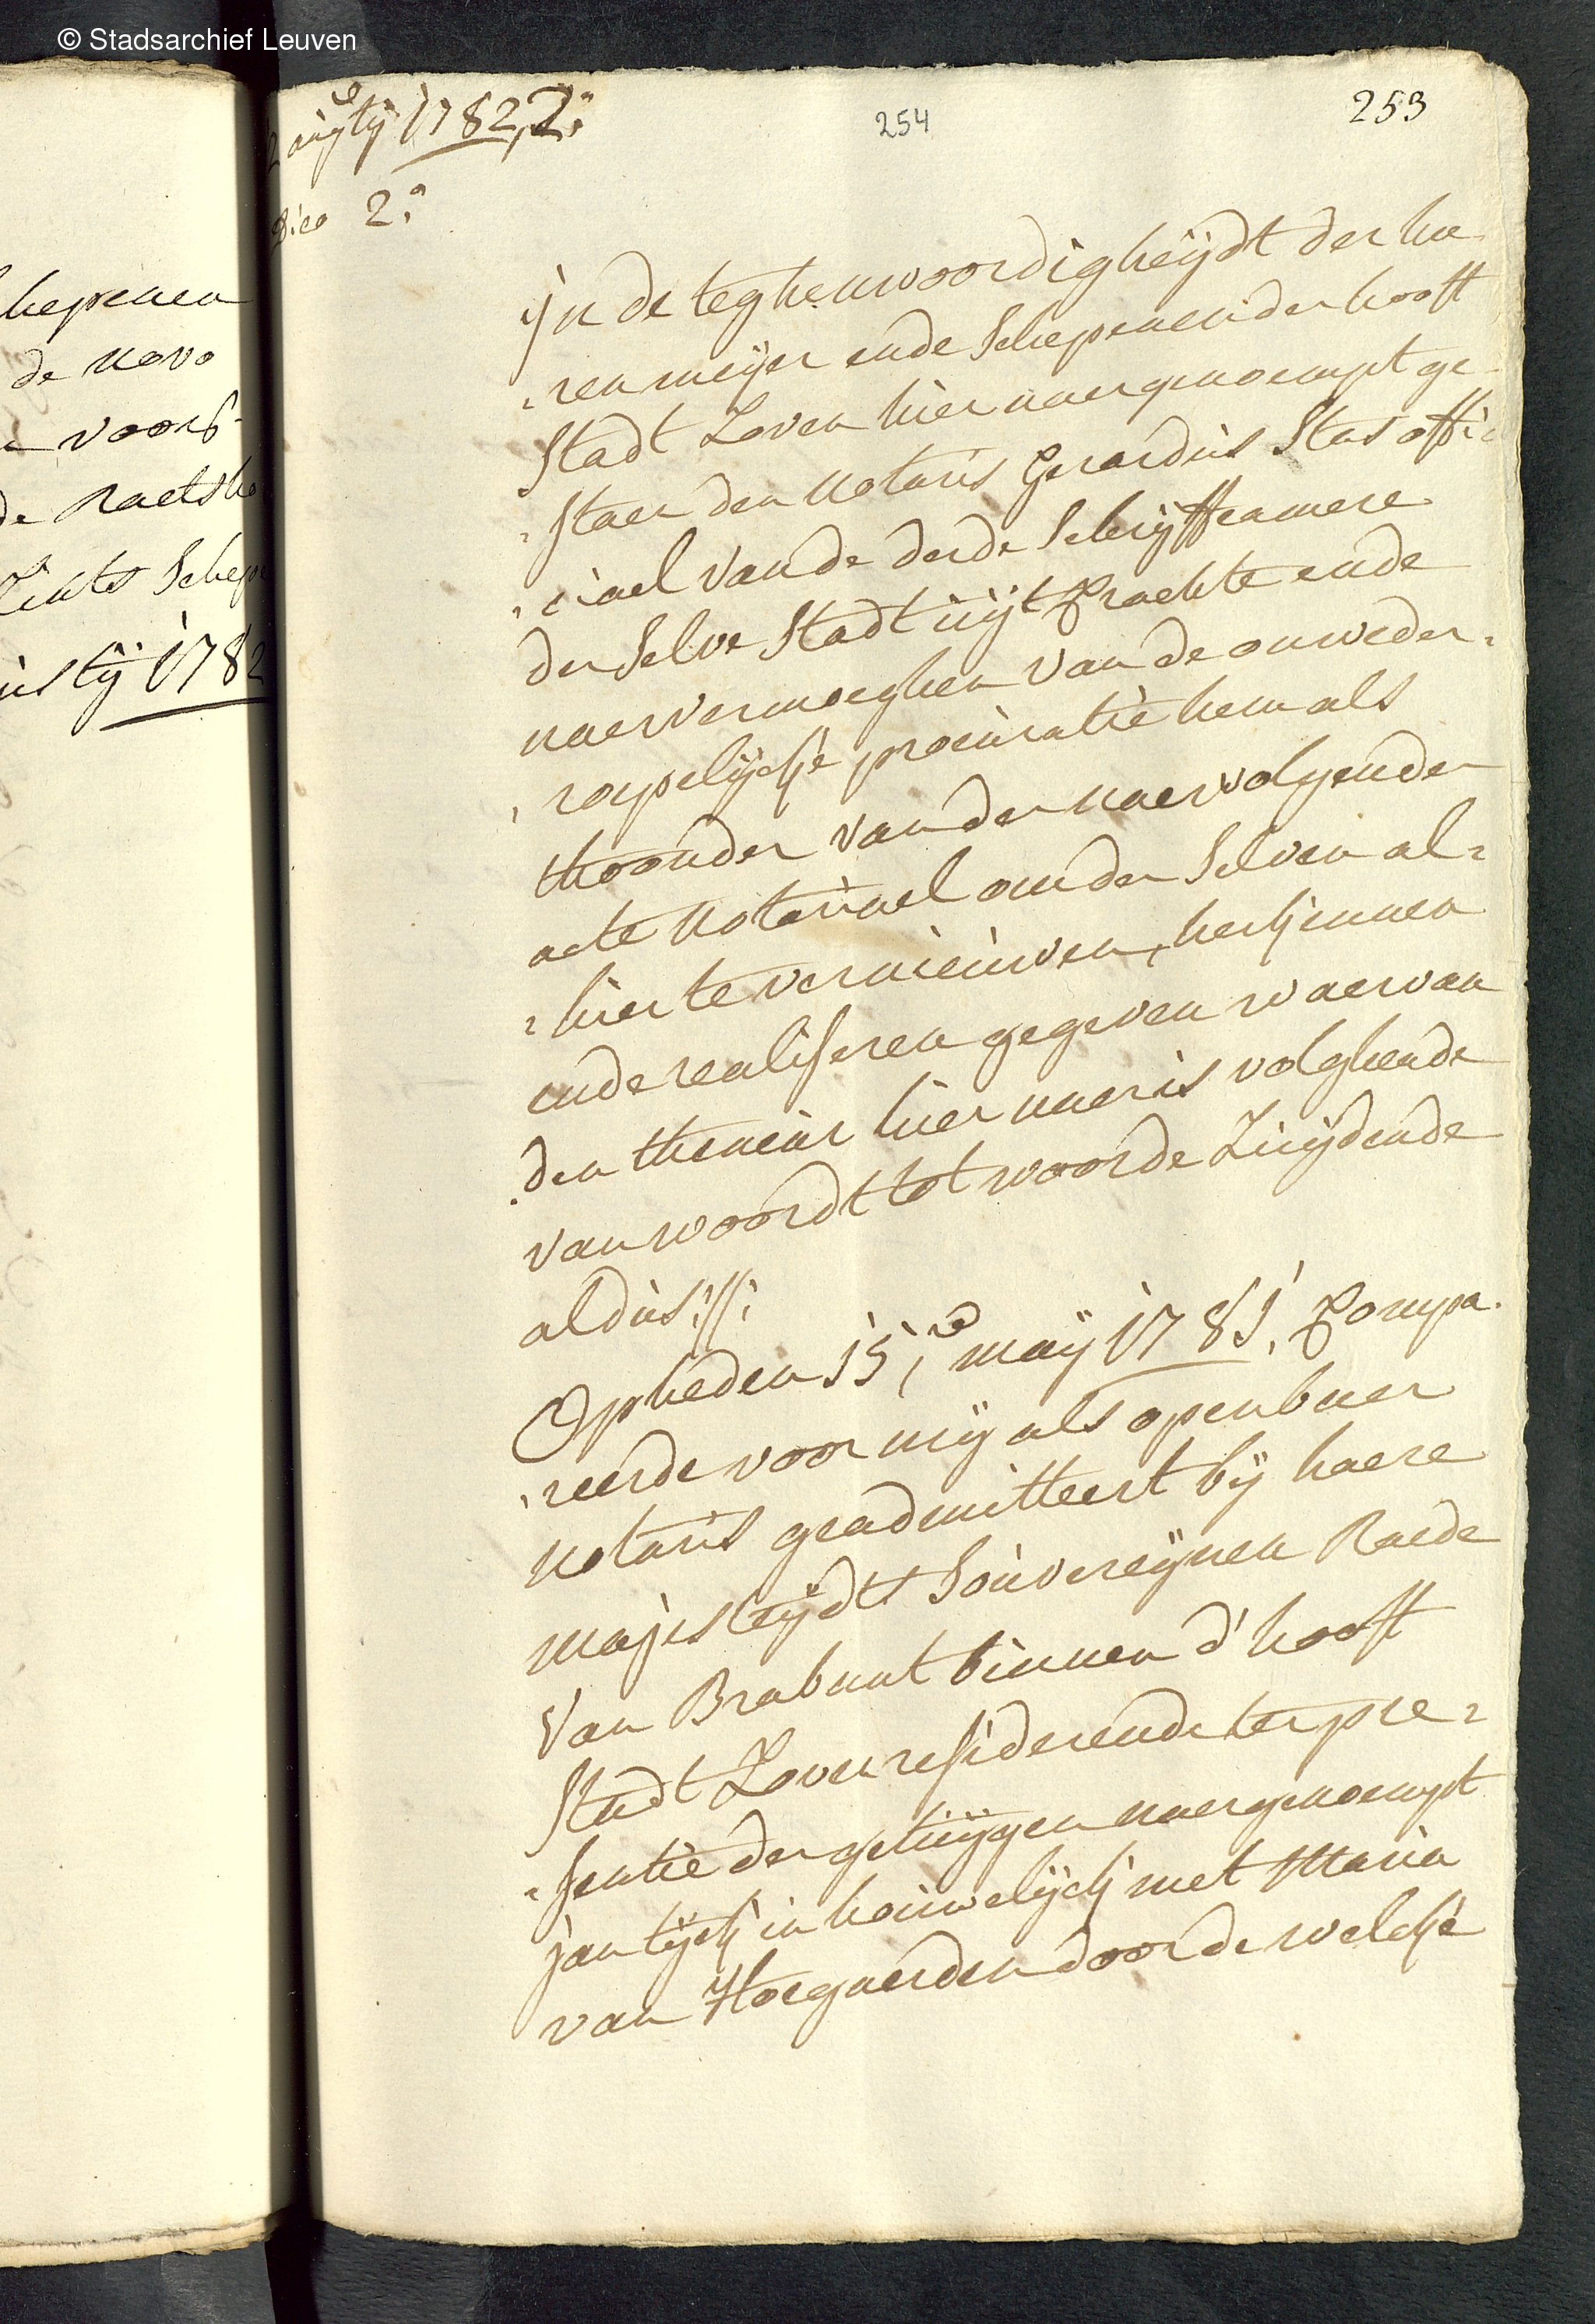 © Stadsarchief Leuven
hepenen
de novo
voors
de raets
Schepe
tij 1782
augty 1782, 2:
Dico 2:
254
253
Jn de teghenwoordigheijdt der hee
ren meijer ende Schepenen der hooft
Stadt Loven hier naergenoempt ge
staen den notaris Gerardus Stas offi
ciael van de derde Schrijffcamere
der Selve Stadt uijt Crachte ende
naer vermoeghen van de onweder
roepelijcke procuratie hem als
thoonder van der naervolgender
acte notariael om den Selven al
hier te vernieuwen, herkennen
ende realiseren gegeven waervan
den theneur hier naer is volghende
van woordt tot woorde Luijdende
aldus://:
Opheden 15, meij 1781, Compa
reerde voor mij als openbaer
notaris geadmitteert bij haere
majesteijdts Souvereijnen Raede
van Brabant binnen d'hooft
Stadt Loven residerende ter pre
sentie der getuijgen naergenoempt
jan tijck in houwelijck met Maria
van Hoegaerden door de welcke